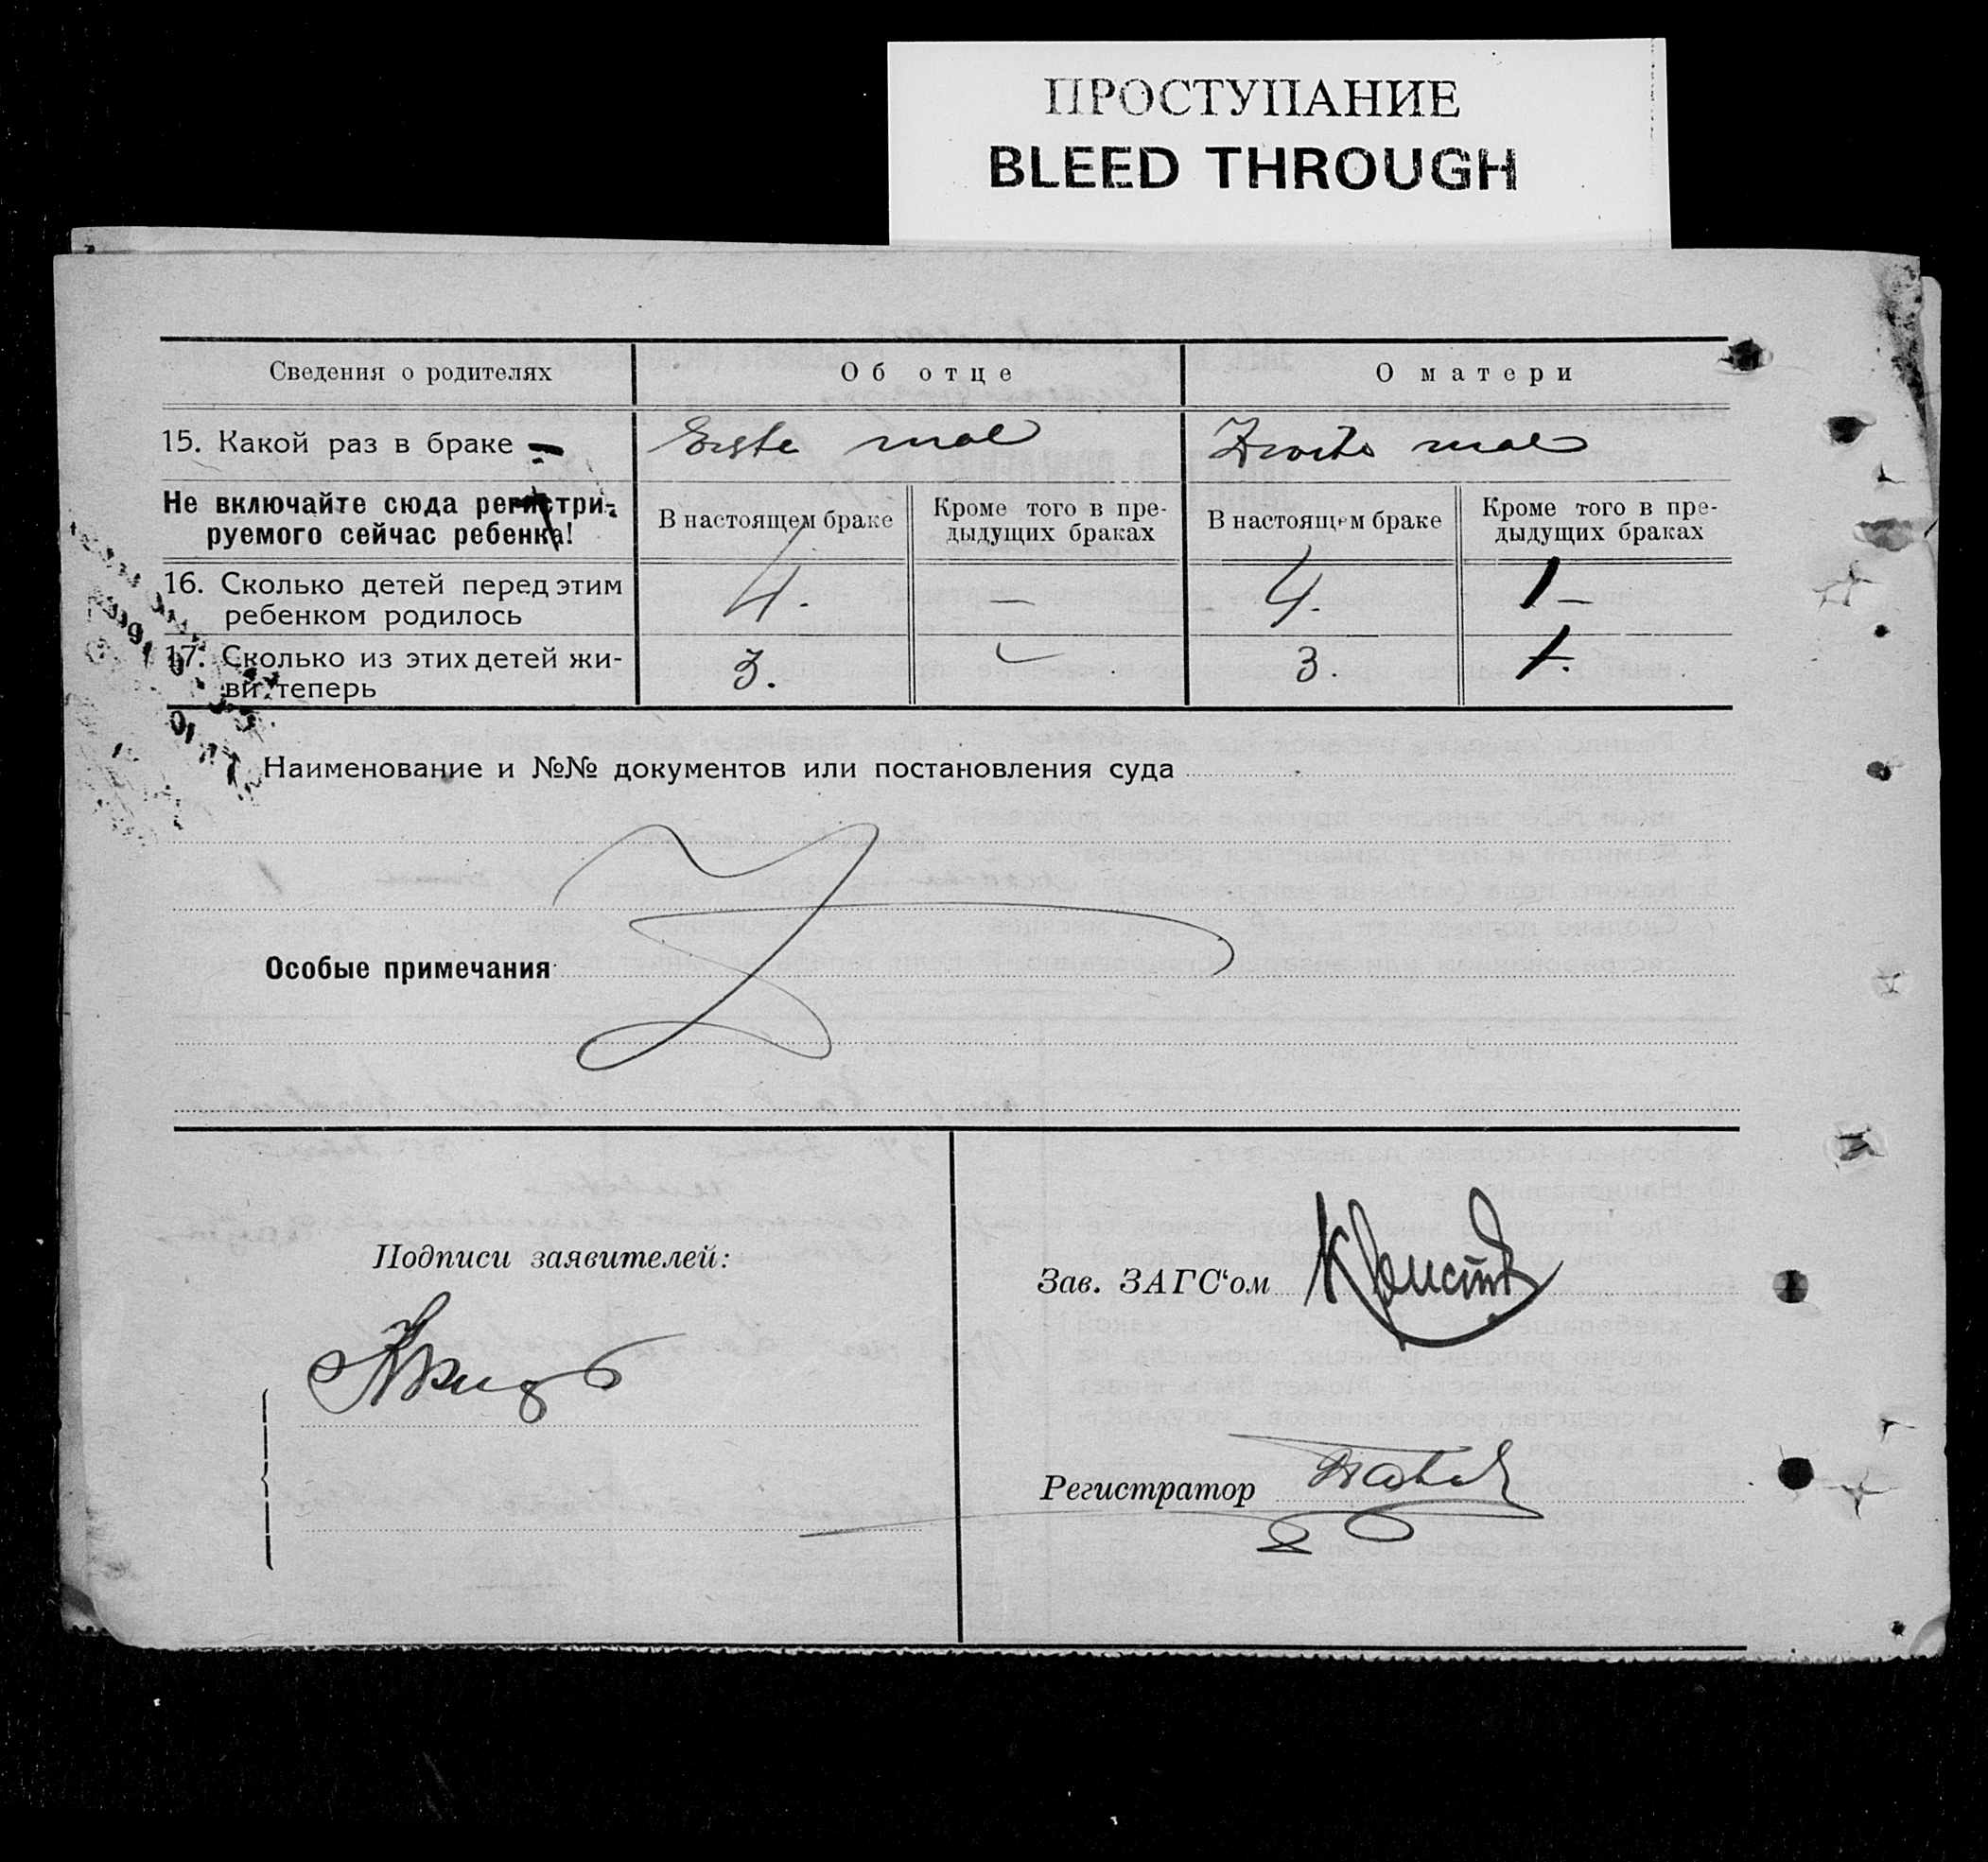 ПРОСТУПАНИЕ
BLEED THROUGH
Сведения о родителях
Об отце
О матери
15. Какой раз в браке
Erste mal
Zweite mal
Не включайте сюда регистри-
руемого сейчас ребенка!
В настоящем браке
Кроме того в пре-
дыдущих браках
В настоящем браке
Кроме того в пре-
дыдущих браках
16. Сколько детей перед этим
ребенком родилось
4.
—
4.
1—
17. Сколько из этих детей жи-
вы теперь
3.
3.
1.
Наименование и №№ документов или постановления суда
Особые примечания
Подписи заявителей:
Зав. ЗАГС'ом
Регистратор